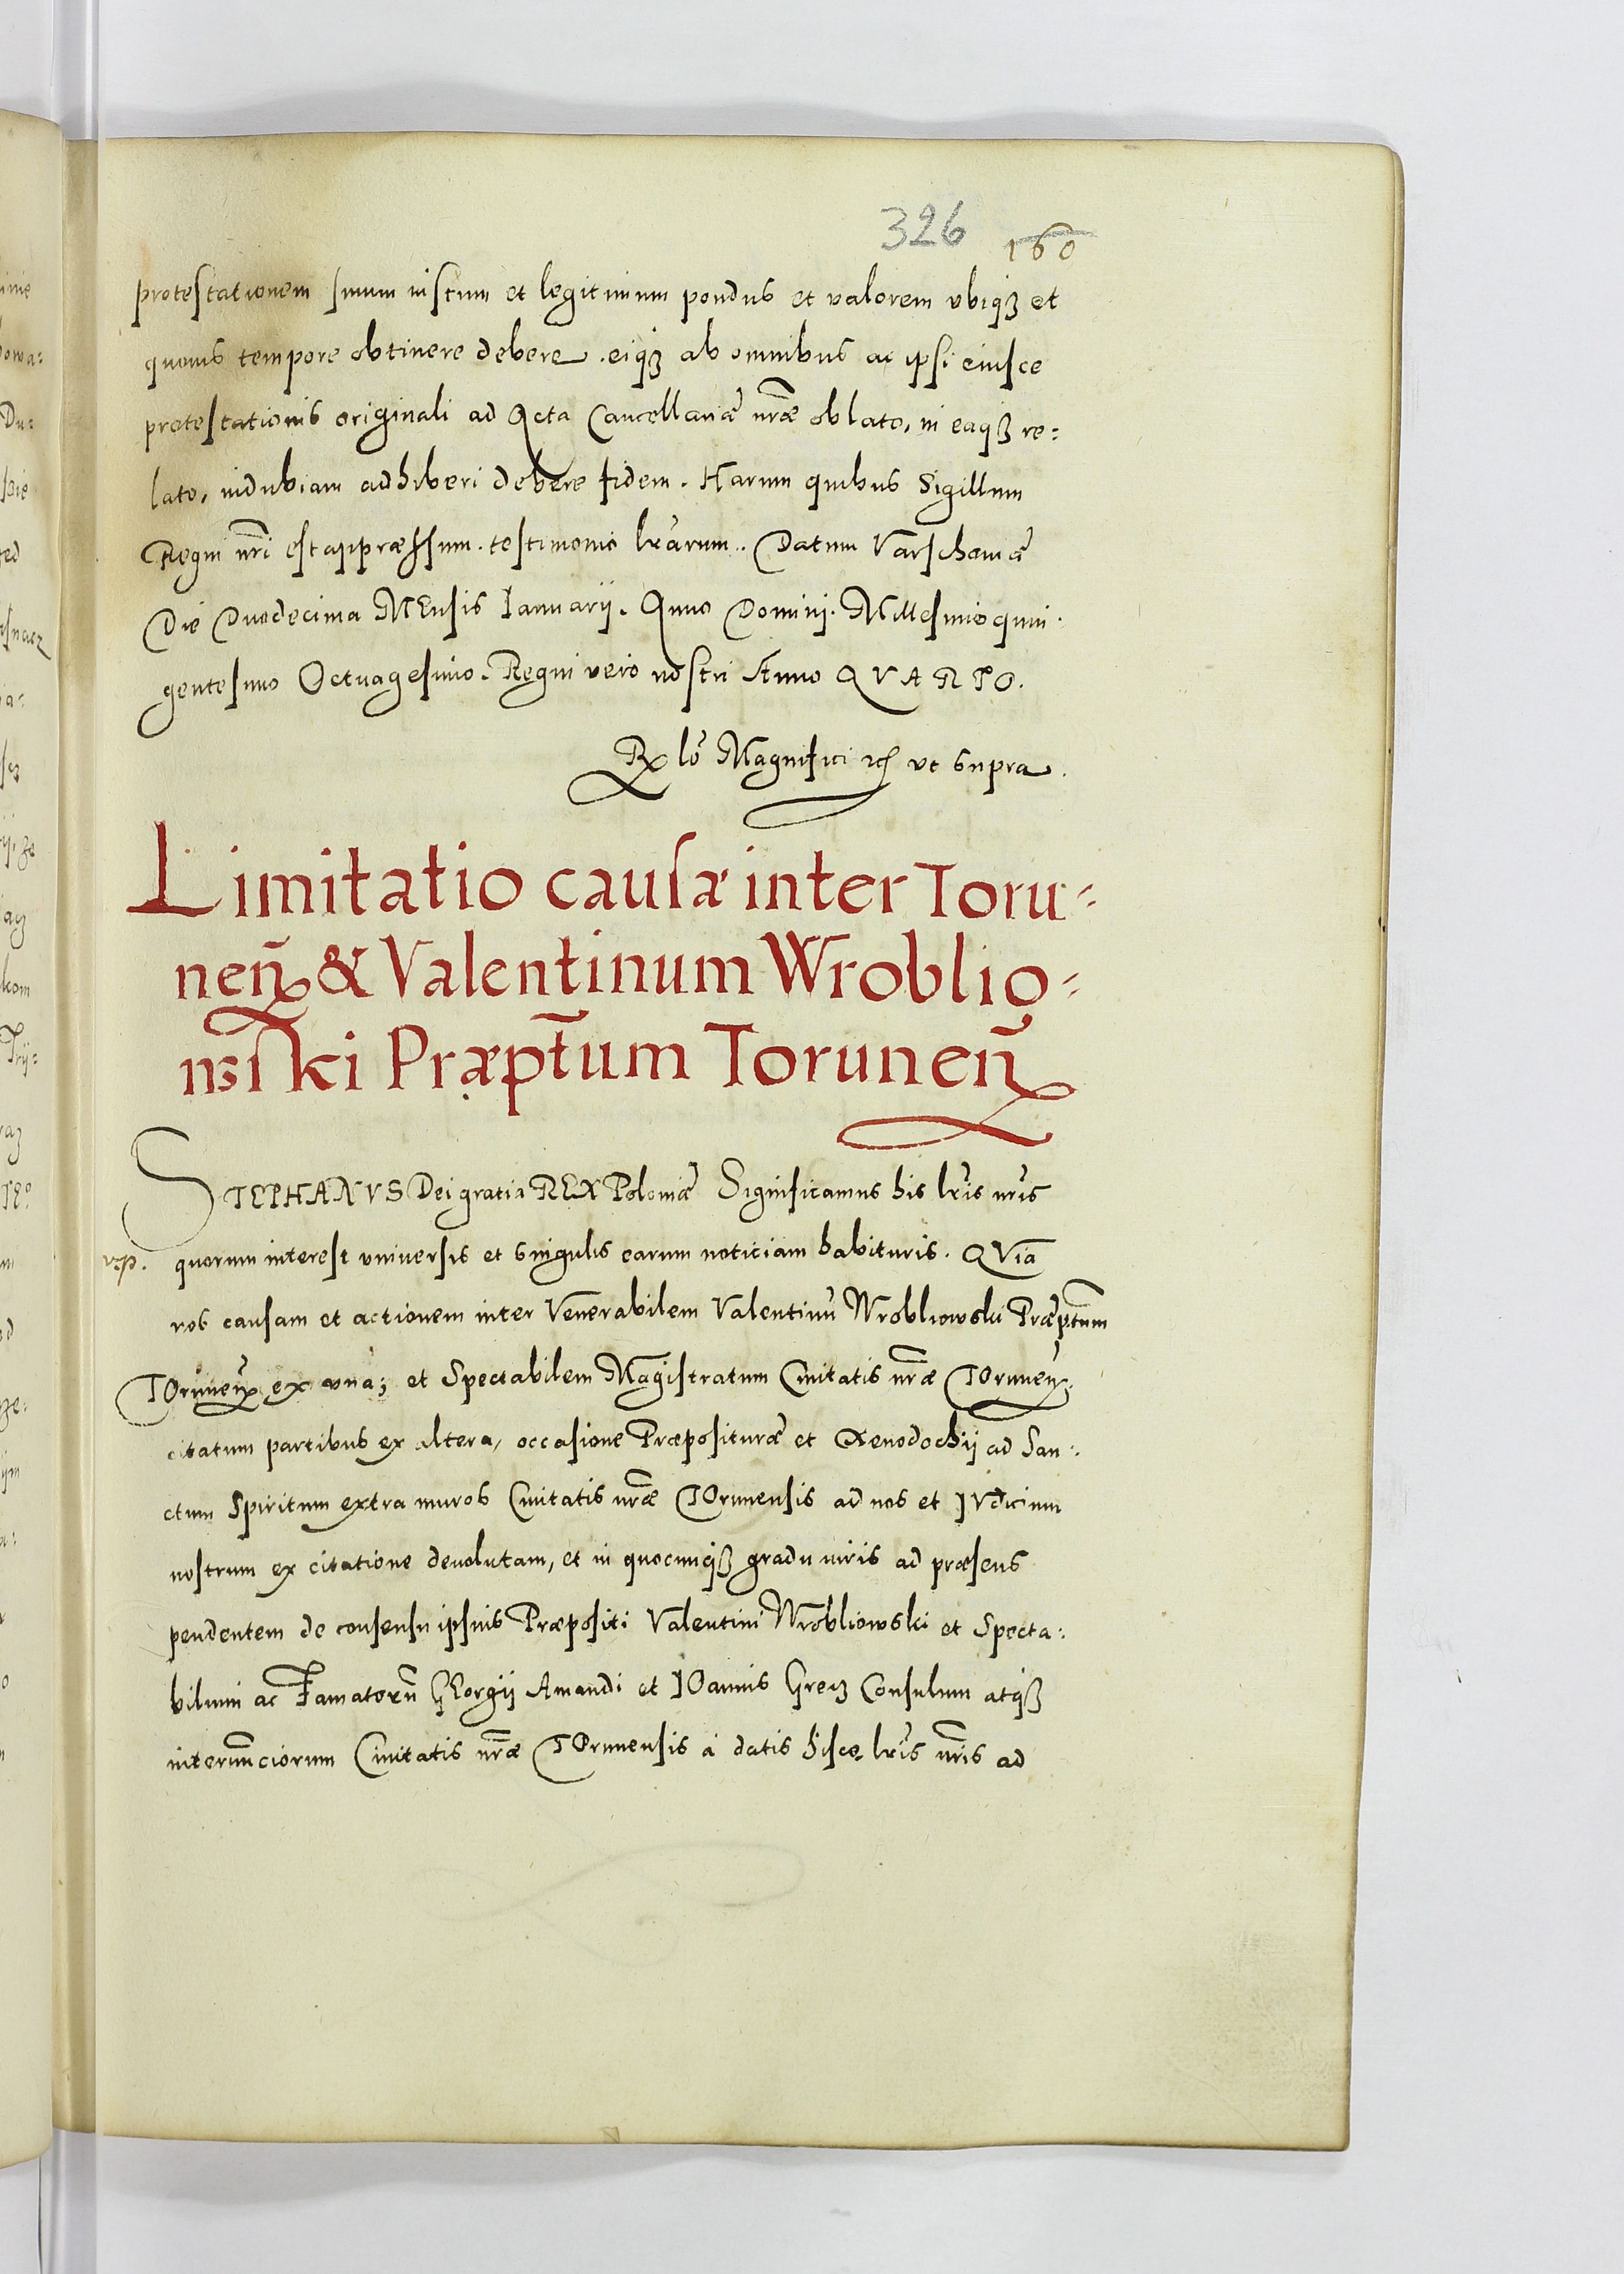 326 160
protestationem suum iustum et legitimum pondus et valorem vbiqȝ et
quouis tempore obtinere debere. eiqȝ ab omnibus ac ipsi eiusce
protestationis originali ad Acta Cancellariæ nr̃æ oblato, in eaqȝ re:
lato, indubiam adhiberi debere fidem. Harum quibus Sigillum
Regni nr̃i est appræssum. testimonio lr̃arum.. Datum Varschauiæ
Die Duodecima MEnsis Ianuarij. Anno Dominij. Millesimo quin:
gentesimo Octuagesimo. Regni vero nostri Anno QVARTO.
Rlõ Magnifici etc ut supra.
Limitatio causæ inter Toru-
neñ & Valentinum Wroblio-
wski Præpt̃um Toruneñ
STEPHANVS Dei gratia REX Poloniæ Significamus his lr̃is nr̃is
vrp. quorum interest vniuersis et singulis earum noticiam habituris. QVia
nos causam et actionem inter Venerabilem Valentinũ Wrobliowski Præpt̃um
TOruneñ ex vna; et Spectabilem Magistratum Ciuitatis nr̃æ TOruneñ.
citatum partibus ex altera, occasione Præposituræ et Xenodochij ad San:
ctum Spiritum extra muros Ciuitatis nr̃æ TOrunensis ad nos et IVdicium
nostrum ex citatione deuolutam, et in quocunqȝ gradu iuris ad præsens
pendentem de consensu ipsius Præpositi Valentini Wrobliowski et Specta:
bilium ac Famatorũ GEorgij Amandi et IOannis Grecz Consulum atqȝ
internũciorum Ciuitatis nr̃æ TOrunensis á datis hisce lr̃is nr̃is ad